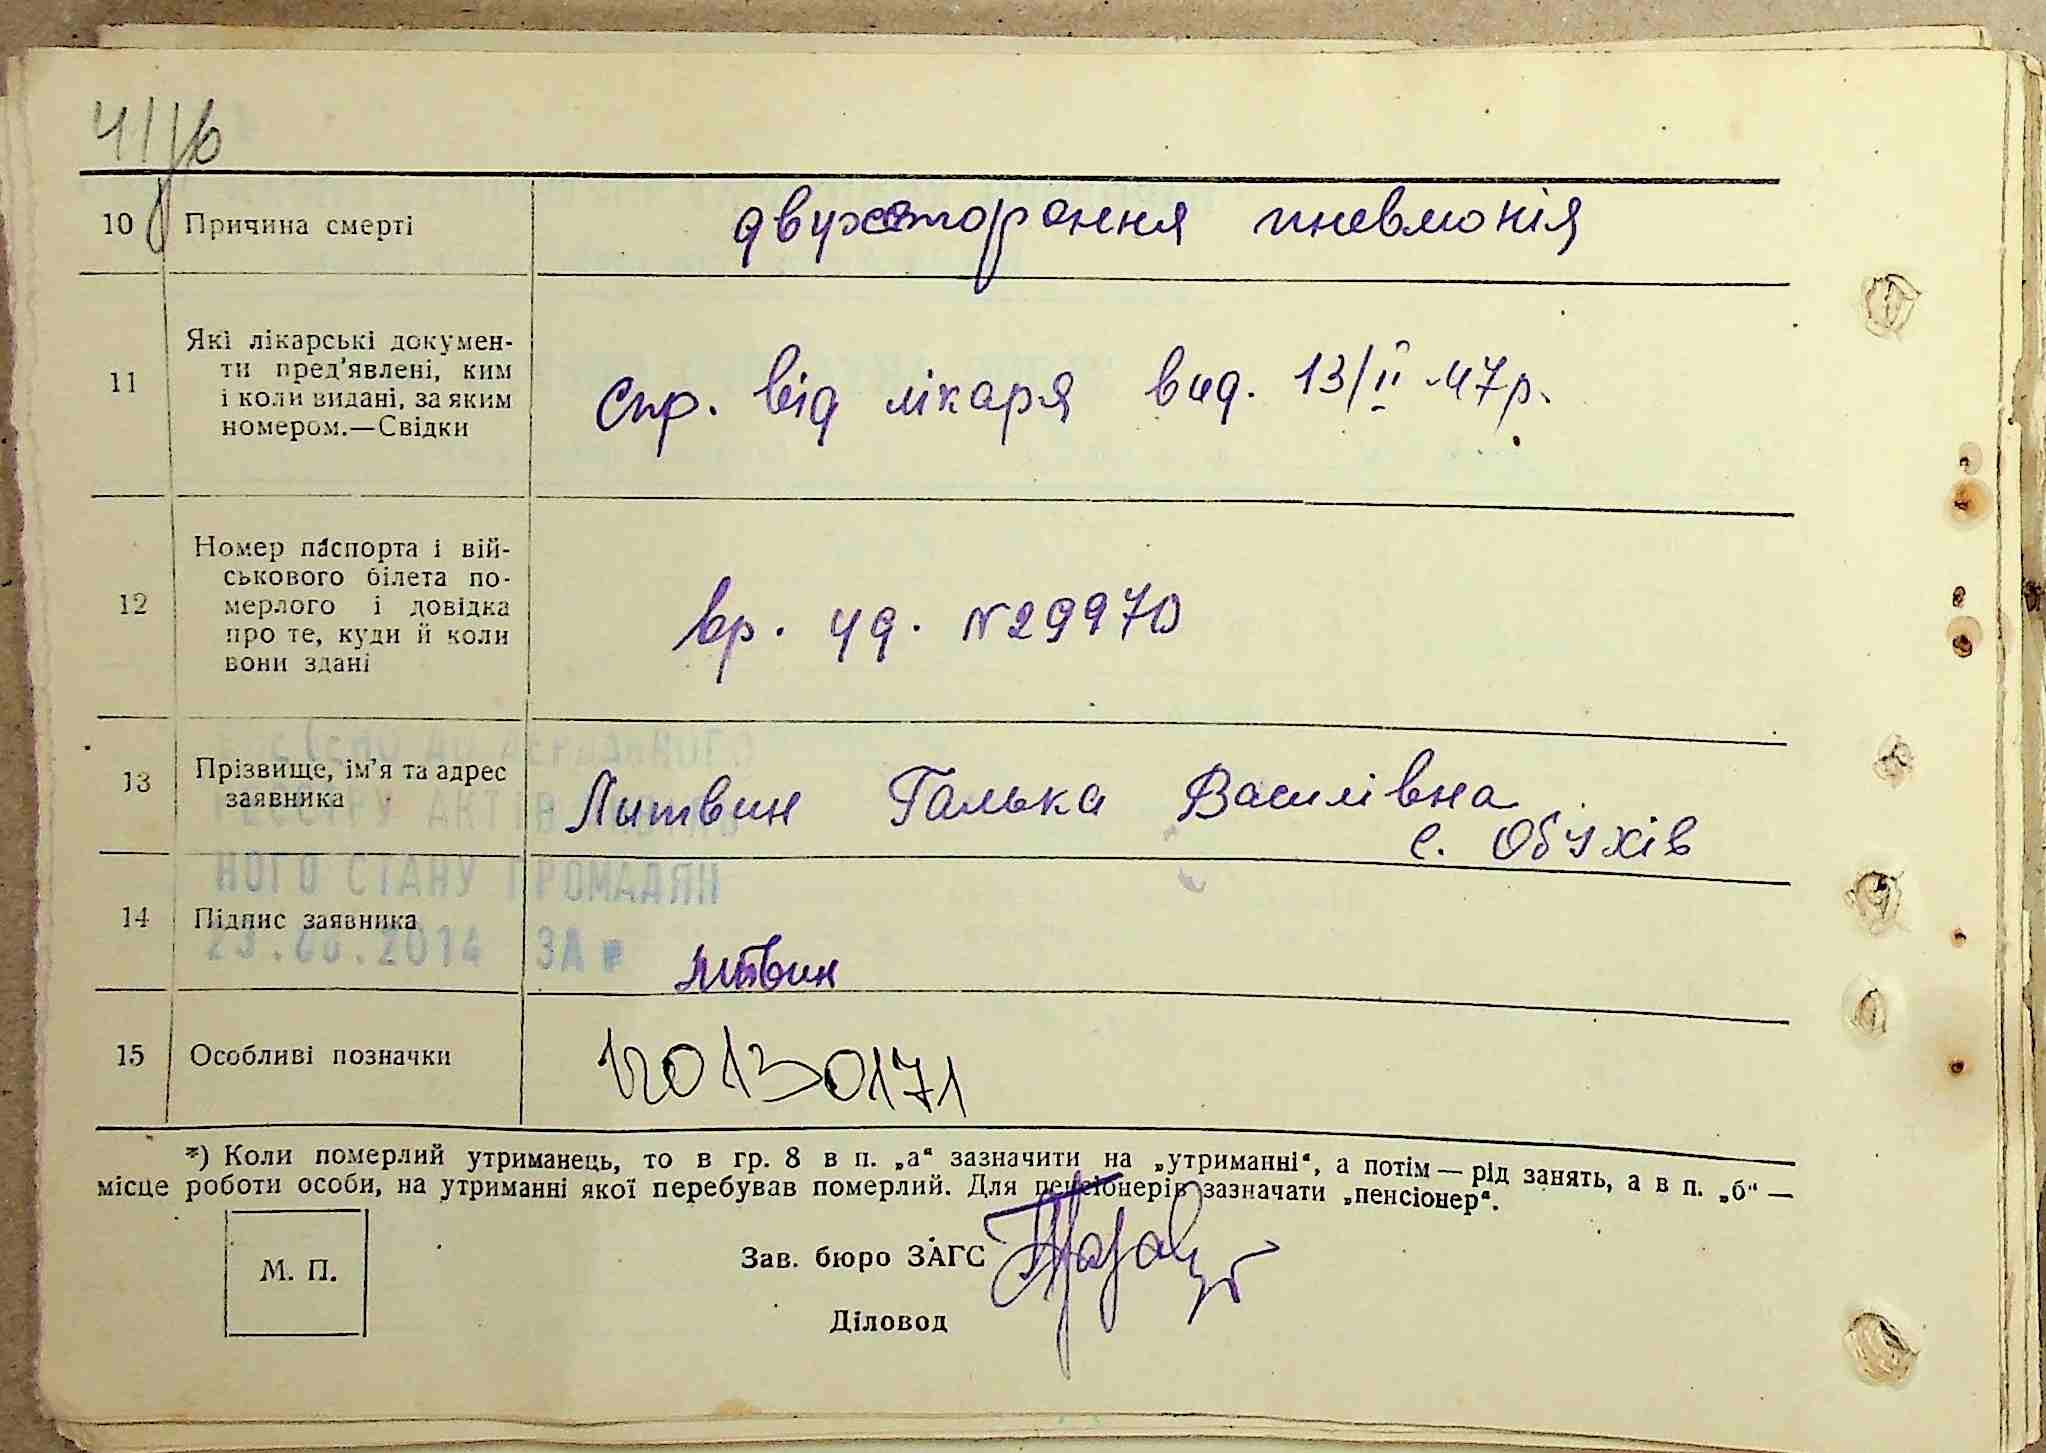 10 Причина смерті двухсторання пневмонія
11 Які лікарські докумен-
ти пред'явлені, ким
і коли видані, за яким
номером.—Свідки
спр. від лікаря вид. 13/II 47р.
12 Номер паспорта і вій-
ськового білета по-
мерлого і довідка
про те, куди й коли
вони здані
вр. уд. №29970
13 Прізвище, ім'я та адрес
заявника
Литвин Галька Василівна
с. Обухів
НОГО СТАНУ ГРОМАДЯН
14 Підпис заявника
2014 ЗА №
Литвин
15 Особливі позначки 120130171
*) Коли померлий утриманець, то в гр. 8 в п. „а“ зазначити на „утриманні“, а потім — рід занять, а в п. „б“ —
місце роботи особи, на утриманні якої перебував померлий. Для пенсіонерів зазначати „пенсіонер“.
М. П.
Зав. бюро ЗАГС
Діловод